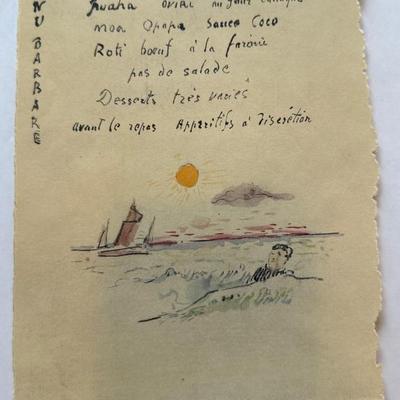 NU BARBARE
moa Opapa Sauce Coco
Roti bœuf à la farani
pas de salade
Desserts très variés
avant le repas Appéritifs à discrétion